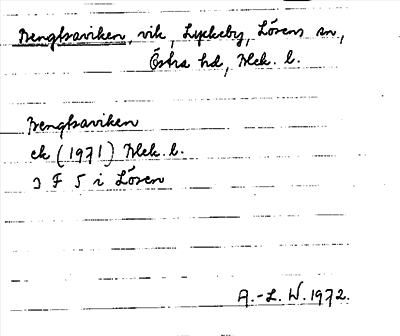 Bengtsaviken, vik, Lyckeby, Lösens sn,
Östra hd, Blek. l.
Bengtsaviken
ek (1971) Blek. l.
3 F 5 i Lösen
A.-L. W. 1972.